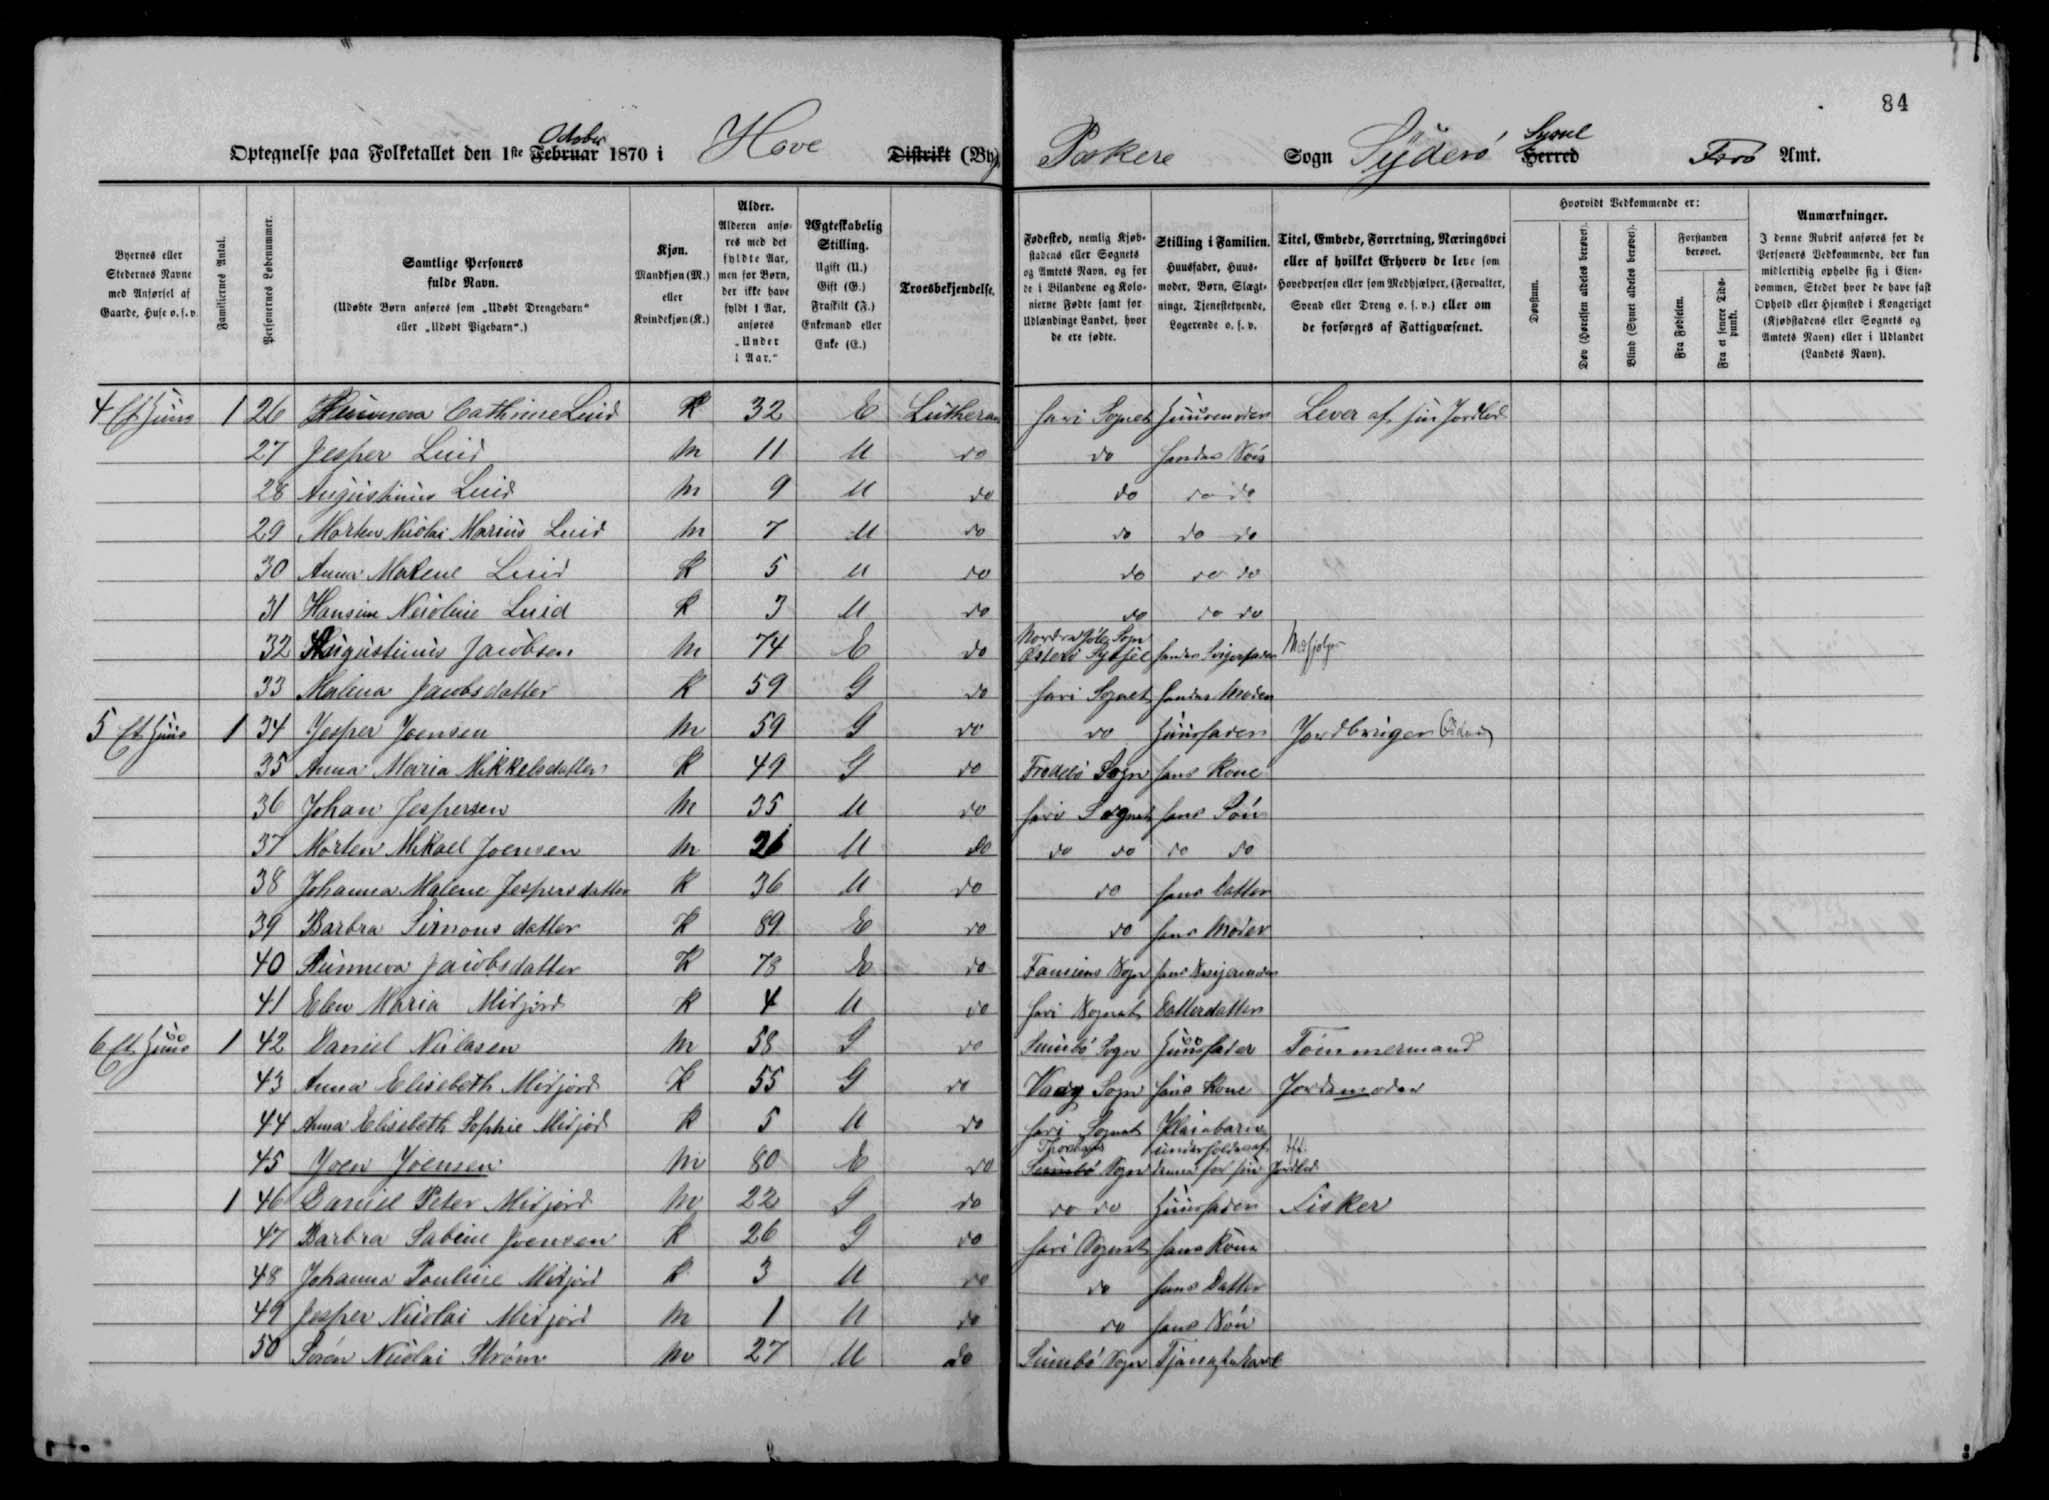 84
Optegnelse paa Folketallet den 1ste Februar October 1870 i Hove Distrikt (By) Porkere Sogn Syderö Herred Syssel Færö Amt.
Byernes eller Stedernes Navne med Anførsel af Gaarde, Huse o. s. v.
Familiernes Antal.
Personernes Løbenummer.
Samtlige Personers fulde Navn.
(Udøbte Børn anføres som „Udøbt Drengebarn“ eller „Udøbt Pigebarn“.)
Kjøn.
Mandkjøn (M.) eller Kvindekjøn (K.)
Alder.
Alderen anføres med det fyldte Aar, men for Børn, der ikke have fyldt 1 Aar, anføres „Under 1 Aar.“
Ægteskabelig Stilling.
Ugift (U.) Gift (G.) Fraskilt (F.) Enkemand eller Enke (E.)
Troesbekjendelse.
Fødested, nemlig Kjøbstadens eller Sognets og Amtets Navn, og for de i Bilandene og Kolonierne Fødte samt for Udlændinge Landet, hvor de ere fødte.
Stilling i Familien.
Huusfader, Huusmoder, Børn, Slægtninge, Tjenestetyende, Logerende o. s. v.
Titel, Embede, Forretning, Næringsvei eller af hvilket Erhverv de leve som Hovedperson eller som Medhjælper, (Forvalter, Svend eller Dreng o. s. v.) eller om de forsørges af Fattigvæsenet.
Hvorvidt Vedkommende er:
Døvstum.
Døv (Hørelsen aldeles berøvet).
Blind (Synet aldeles berøvet).
Forstanden berøvet.
Fra Fødselen.
Fra et senere Tidspunkt.
Anmærkninger.
I denne Rubrik anføres for de Personers Vedkommende, der kun midlertidig opholde sig i Eiendommen, Stedet hvor de have fast Ophold eller Hjemsted i Kongeriget (Kjøbstadens eller Sognets og Amtets Navn) eller i Udlandet (Landets Navn).
4 Et Huus 1 26 Sunneva Cathrine Luid K 32 E Lutheran heri Sognet Huusmoder Lever af sin Jordlod
27 Jesper Luid M 11 U do do hendes Sön
28 Augustinus Luid M 9 U do do do do
29 Morten Nicolai Marius Luid M 7 U do do do do
30 Anna Malene Luid K 5 U do do do do
31 Hansine Nicoline Luid K 3 U do do do do
32 Augustinus Jacobsen M 74 E do Sogn Österö Syssel hendes Svigerfader
33 Malena Jacobsdatter K 59 G do heri Sognet hendes Moder
5 Et Huus 1 34 Jesper Joensen M 59 G do do Huusfader Jordbruger
35 Anna Maria Mikkelsdatter K 49 G do Frodebö Sogn hans Kone
36 Johan Jespersen M 35 U do heri Sognet hans Sön
37 Morten Mikael Joensen M 21 U do do do do do
38 Johanna Malene Jespersdatter K 36 U do do hans Datter
39 Barbra Simonsdatter K 89 E do do hans Moder
40 Sunneva Jacobsdatter K 78 E do Famiens Sogn hans Svigermoder
41 Elen Maria Midjord K 4 U do heri Sognet Datterdatter
6 Et Huus 1 42 Daniel Nielasen M 58 G do Sumbö Sogn Huusfader Tömmermand
43 Anna Elisebeth Midjord K 55 G do Vaag Sogn hans Kone Jordemoder
44 Anna Elisebeth Sophie Midjord K 5 U do heri Sognet Pleiebarn
45 Joen Joensen M 80 E do Sumbö Sogn underholdes af denne for sin Jordlod
1 46 Daniel Peter Midjord M 22 G do do do Huusfader Fisker
47 Barbra Sabine Joensen K 26 G do heri Sognet hans Kone
48 Johanna Pouline Midjord K 3 U do do hans Datter
49 Jesper Nicolai Midjord M 1 U do do hans Sön
50 Sören Nicolai Ström M 27 U do Sumbö Sogn Tjenestekarl